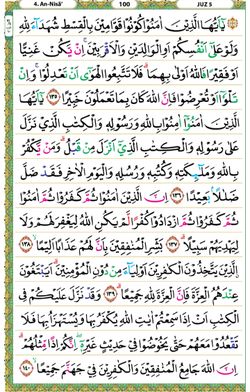 4. An-Nisā'
100
JUZ 5
يَٰٓأَيُّهَا ٱلَّذِينَ ءَامَنُوا۟ كُونُوا۟ قَوَّٰمِينَ بِٱلْقِسْطِ شُهَدَآءَ لِلَّهِ
وَلَوْ عَلَىٰٓ أَنفُسِكُمْ أَوِ ٱلْوَٰلِدَيْنِ وَٱلْأَقْرَبِينَ ۚ إِن يَكُنْ غَنِيًّا
أَوْ فَقِيرًا فَٱللَّهُ أَوْلَىٰ بِهِمَا ۖ فَلَا تَتَّبِعُوا۟ ٱلْهَوَىٰٓ أَن تَعْدِلُوا۟ ۚ وَإِن
تَلْوُۥٓا۟ أَوْ تُعْرِضُوا۟ فَإِنَّ ٱللَّهَ كَانَ بِمَا تَعْمَلُونَ خَبِيرًا ١٣٥ يَٰٓأَيُّهَا
ٱلَّذِينَ ءَامَنُوٓا۟ ءَامِنُوا۟ بِٱللَّهِ وَرَسُولِهِۦ وَٱلْكِتَٰبِ ٱلَّذِى نَزَّلَ
عَلَىٰ رَسُولِهِۦ وَٱلْكِتَٰبِ ٱلَّذِىٓ أَنزَلَ مِن قَبْلُ ۚ وَمَن يَكْفُرْ
بِٱللَّهِ وَمَلَٰٓئِكَتِهِۦ وَكُتُبِهِۦ وَرُسُلِهِۦ وَٱلْيَوْمِ ٱلْءَاخِرِ فَقَدْ ضَلَّ
ضَلَٰلًۢا بَعِيدًا ١٣٦ إِنَّ ٱلَّذِينَ ءَامَنُوا۟ ثُمَّ كَفَرُوا۟ ثُمَّ ءَامَنُوا۟
ثُمَّ كَفَرُوا۟ ثُمَّ ٱزْدَادُوا۟ كُفْرًا لَّمْ يَكُنِ ٱللَّهُ لِيَغْفِرَ لَهُمْ وَلَا
لِيَهْدِيَهُمْ سَبِيلًۢا ١٣٧ بَشِّرِ ٱلْمُنَٰفِقِينَ بِأَنَّ لَهُمْ عَذَابًا أَلِيمًا ١٣٨
ٱلَّذِينَ يَتَّخِذُونَ ٱلْكَٰفِرِينَ أَوْلِيَآءَ مِن دُونِ ٱلْمُؤْمِنِينَ ۚ أَيَبْتَغُونَ
عِندَهُمُ ٱلْعِزَّةَ فَإِنَّ ٱلْعِزَّةَ لِلَّهِ جَمِيعًا ١٣٩ وَقَدْ نَزَّلَ عَلَيْكُمْ فِى
ٱلْكِتَٰبِ أَنْ إِذَا سَمِعْتُمْ ءَايَٰتِ ٱللَّهِ يُكْفَرُ بِهَا وَيُسْتَهْزَأُ بِهَا فَلَا
تَقْعُدُوا۟ مَعَهُمْ حَتَّىٰ يَخُوضُوا۟ فِى حَدِيثٍ غَيْرِهِۦٓ ۚ إِنَّكُمْ إِذًا مِّثْلُهُمْ ۗ
إِنَّ ٱللَّهَ جَامِعُ ٱلْمُنَٰفِقِينَ وَٱلْكَٰفِرِينَ فِى جَهَنَّمَ جَمِيعًا ١٤٠